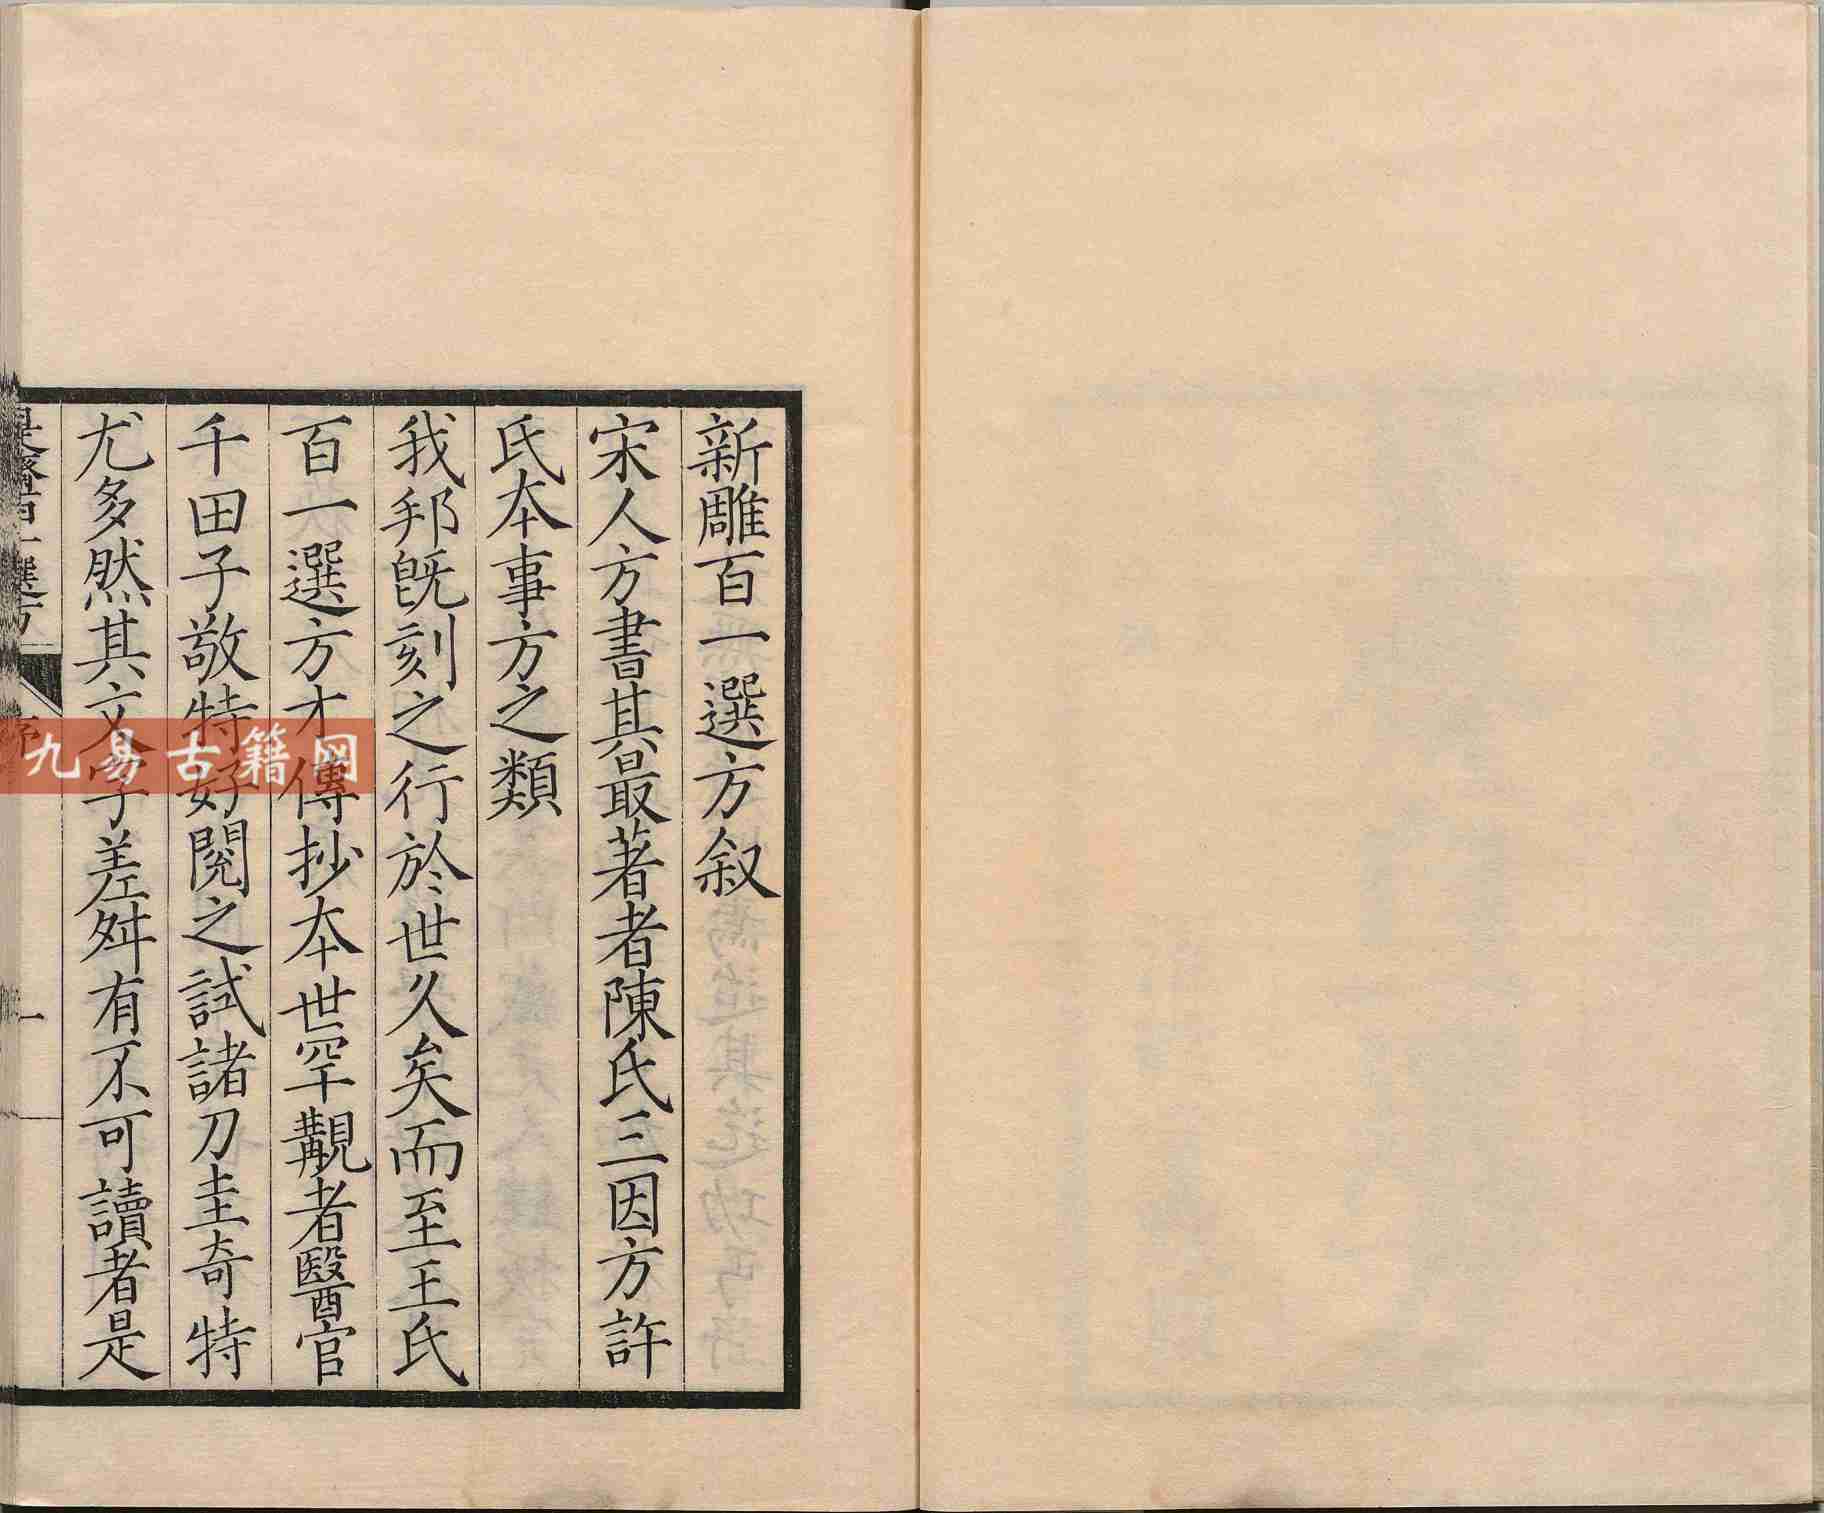 新雕百一選方叙
宋人方書其最著者陳氏三因方許
氏本事方之類
我邦既刻之行於世久矣而至王氏
百一選方才傳抄本世罕覯者醫官
千田子敬特好閱之試諸刀圭奇特
尤多然其文字差舛有不可讀者是
是醫百一選方
序
一
九易古籍网